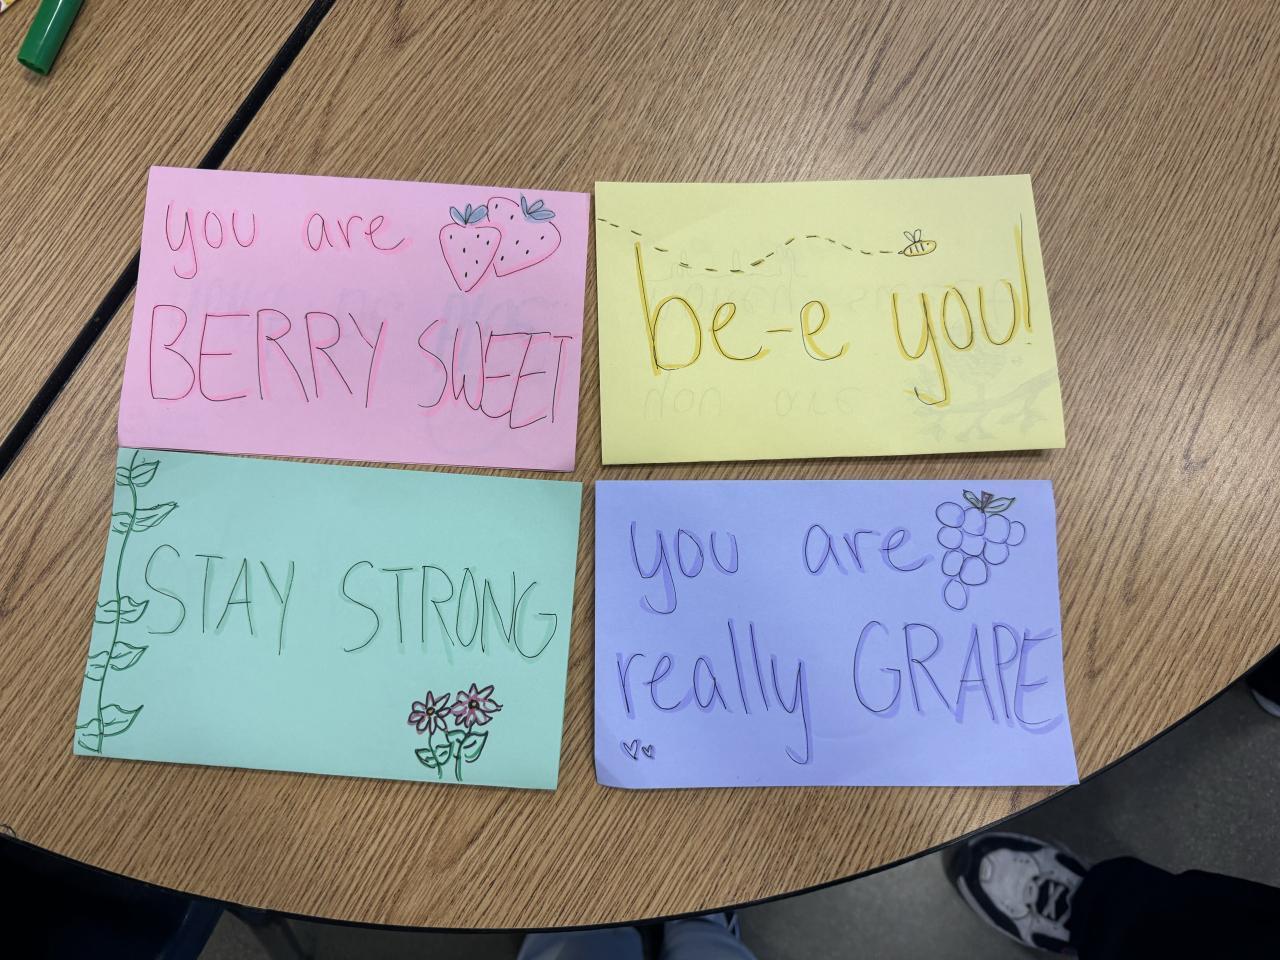 you are
BERRY SWEET
be-e you!
STAY STRONG
you are
really GRAPE